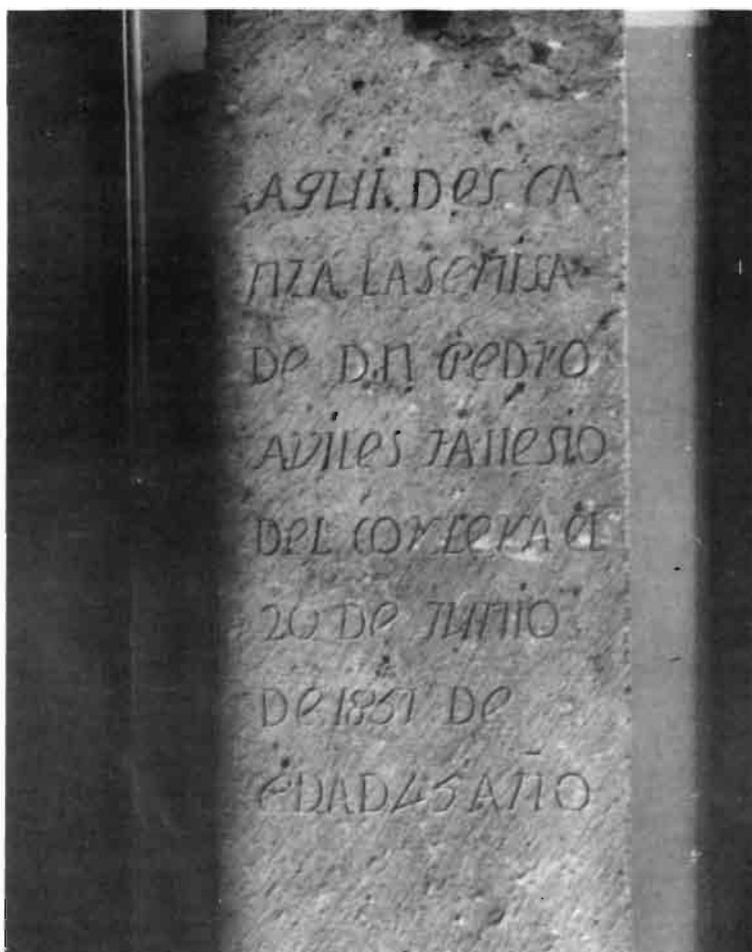 AQUI DesCA
NZA LASeNISA
De D.N PeDrO
AVILes FAlleSIO
DeL COrLeRA eL
20 De JUNIO
De 1857 De
eDAD 45 AÑO